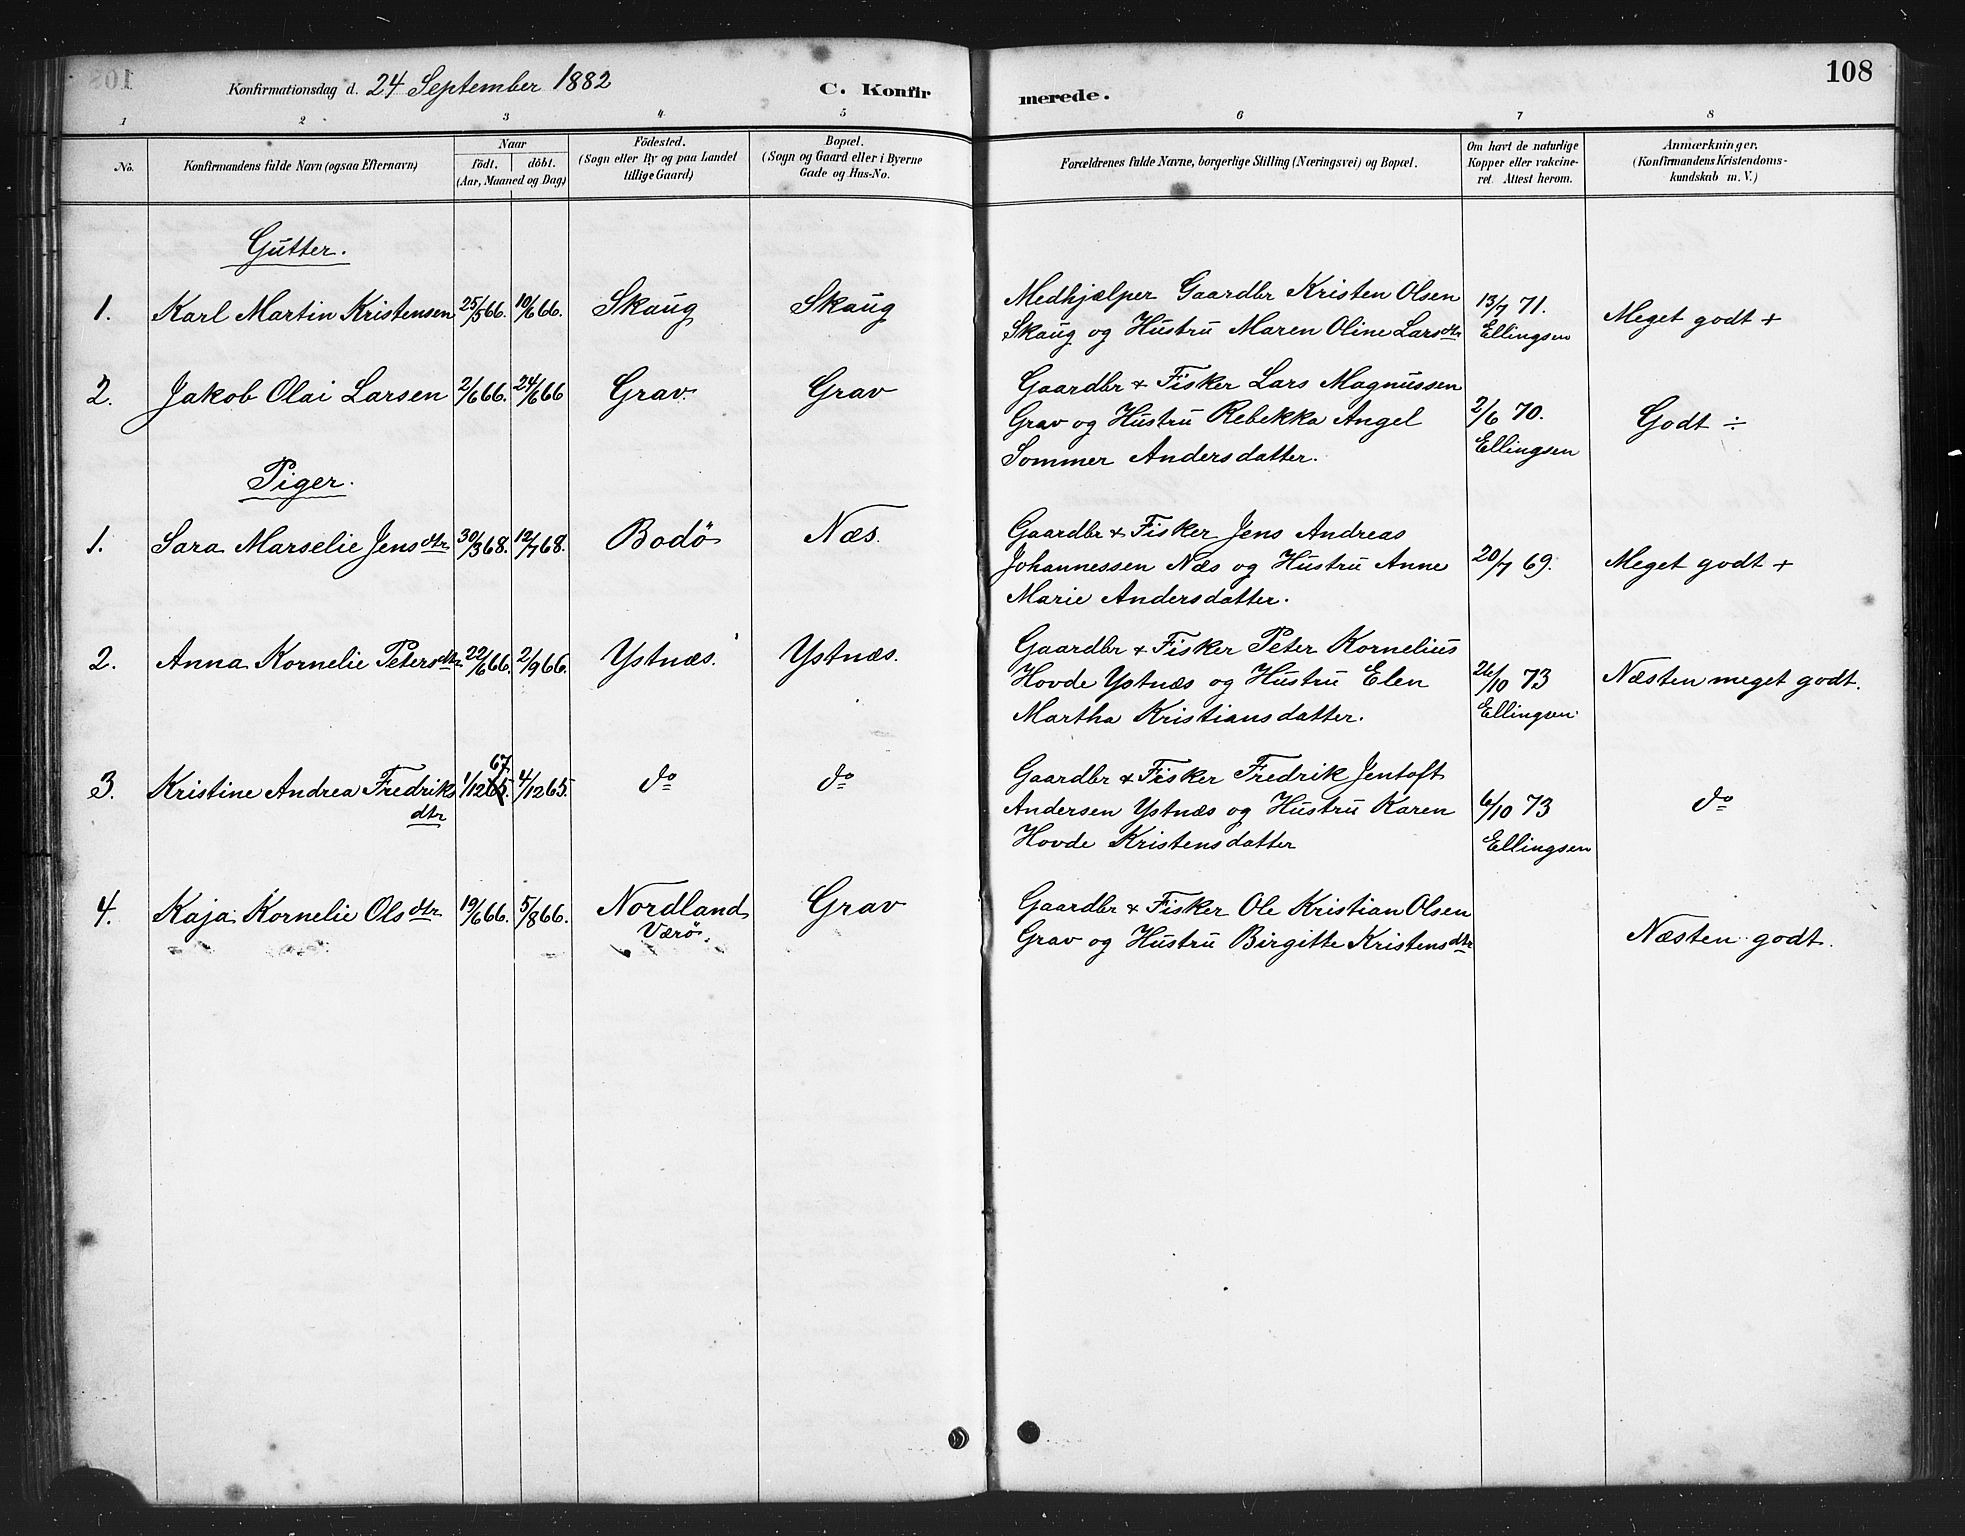 Konfirmationsdag d. 24 September 1882
C. Konfirmerede.
108
1 2 3 4 5 6 7 8
No.
Konfirmandens fulde Navn (ogsaa Efternavn)
Naar
födt. döbt.
(Aar, Maaned og Dag)
Födested.
(Sogn eller By og paa Landet
tillige Gaard)
Bopæl.
(Sogn og Gaard eller i Byerne
Gade og Hus-No.
Forældrenes fulde Navne, borgerlige Stilling (Næringsvei) og Bopæl.
Om havt de naturlige
Kopper eller vakcine-
ret. Attest herom.
Anmærkninger.
(Konfirmandens Kristendoms-
kundskab m. V.)
Gutter.
1. Karl Martin Kristensen 25/5 66. 10/6 66. Skaug Skaug
Medhjælper Gaardbr Kristen Olsen
Skaug og Hustru Maren Oline Larsdtr
13/7 71.
Ellingsen
Meget godt +
2. Jakob Olai Larsen 2/6 66. 24/6 66 Grav. Grav
Gaardbr & Fisker Lars Magnussen
Grav og Hustru Rebekka Angel
Sommer Andersdatter.
2/6 70.
Ellingsen
Godt ÷
Piger.
1. Sara Marselie Jensdtr 30/3 68. 12/7 68. Bodö Næs.
Gaardbr & Fisker Jens Andreas
Johannessen Næs og Hustru Anne
Marie Andersdatter.
20/7 69.
Meget godt +
2. Anna Kornelie Petersdtr 22/6 66. 2/9 66. Ystnæs. Ystnæs.
Gaardbr & Fisker Peter Kornelius
Hovde Ystnæs og Hustru Elen
Martha Kristiansdatter.
26/10 73
Ellingsen
Næsten meget godt.
67
3. Kristine Andrea Fredriks 1/12 65. 4/12 65. do do
dtr
Gaardbr & Fisker Fredrik Jentoft
Andersen Ystnæs og Hustru Karen
Hovde Kristensdatter
6/10 73
Ellingsen
do
4. Kaja Kornelie Olsdtr 19/6 66. 5/8 66. Nordland Grav
Værö.
Gaardbr & Fisker Ole Kristian Olsen
Grav og Hustru Birgitte Kristensdtr
Næsten godt.